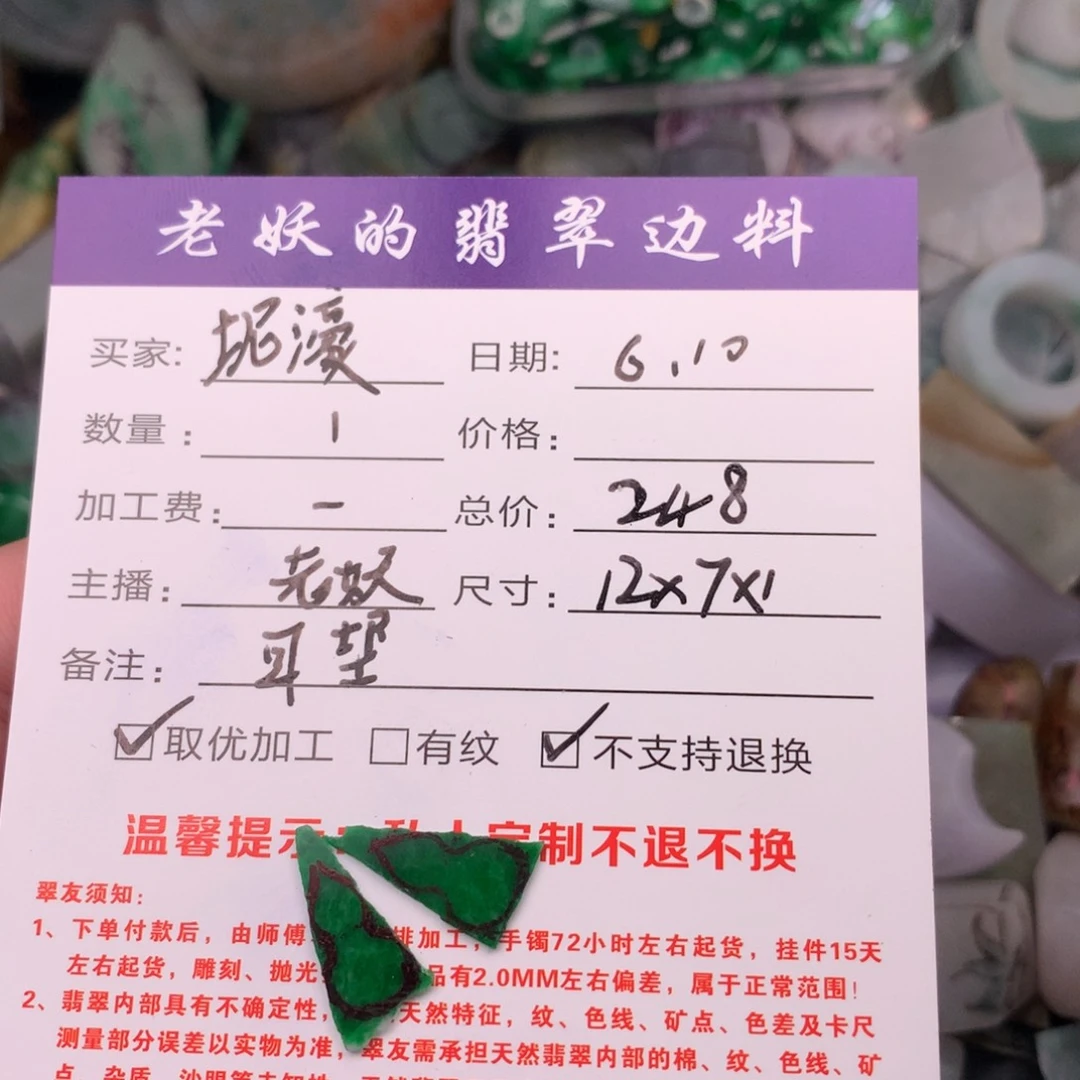 老妖的翡翠边料
买家: 妮濠 日期: 6.10
数量: 1 价格:
加工费: - 总价: 248
主播: 老妖 尺寸: 12x7x1
备注: 耳
取优加工 有纹 不支持退换
温馨提 制不退不换
翠友须知:
1、下单付款后,由师傅 排加工,手镯72小时左右起货,挂件15天
左右起货,雕刻、抛光 品有2.0MM左右偏差,属于正常范围!
2、翡翠内部具有不确定性, 天然特征,纹、色线、矿点、色差及卡尺
测量部分误差以实物为准,翠友需承担天然翡翠内部的棉、纹、色线、矿